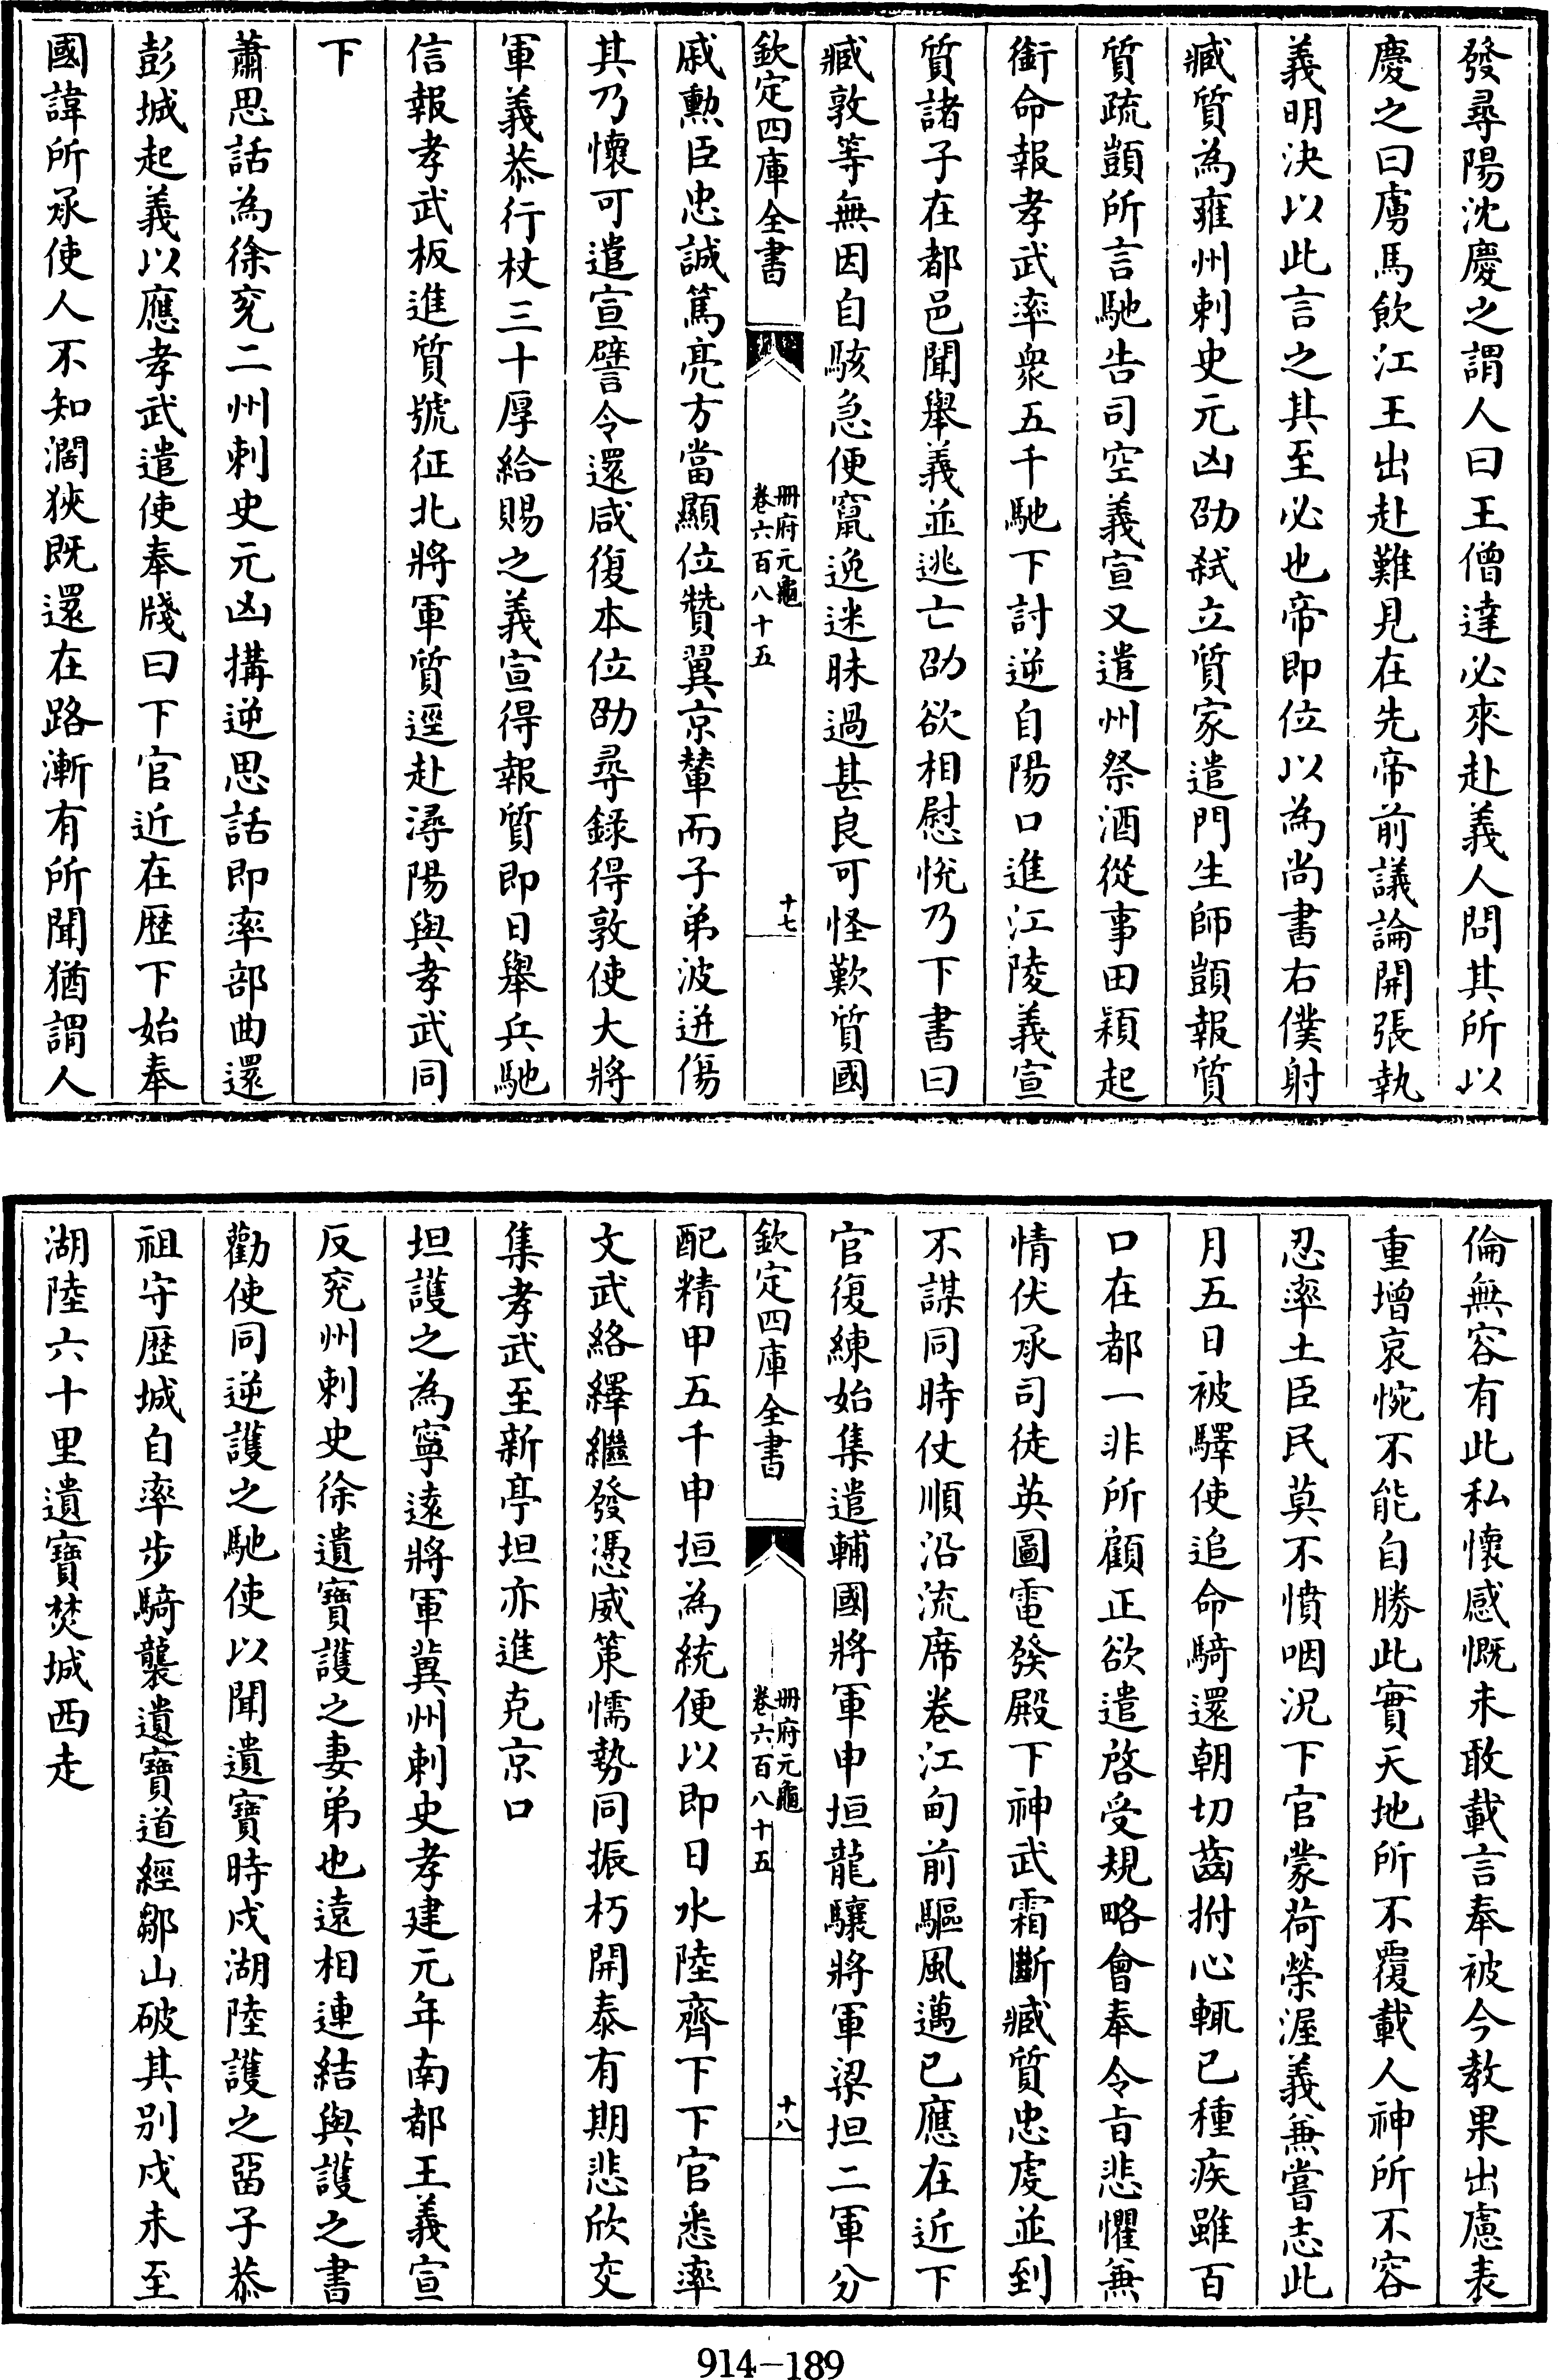 發尋陽沈慶之謂人曰王僧達必來赴義人問其所以
慶之曰虜馬飲江王出赴難見在先帝前議論開張執
義明決以此言之其至必也帝即位以為尚書右僕射
臧質為雍州刺史元凶劭弑立質家遣門生師顗報質
質疏顗所言馳告司空義宣又遣州祭酒從事田穎起
銜命報孝武率衆五千馳下討逆自陽口進江陵義宣
質諸子在都邑聞舉義並逃亡劭欲相慰悅乃下書曰
臧敦等無因自駭急便竄逸迷昧過甚良可怪歎質國
欽定四庫全書
冊府元龜
卷六百八十五
十七
戚勲臣忠誠篤亮方當顯位贊翼京輦而子弟波迸傷
其乃懷可遣宣譬令還咸復本位劭尋錄得敦使大將
軍義恭行杖三十厚給賜之義宣得報質即日舉兵馳
信報孝武板進質號征北將軍質逕赴潯陽與孝武同
下
蕭思話為徐兖二州刺史元凶搆逆思話即率部曲還
彭城起義以應孝武遣使奉牋曰下官近在歴下始奉
國諱所承使人不知濶狹既還在路漸有所聞猶謂人
倫無容有此私懷感慨未敢載言奉被今教果出慮表
重增哀惋不能自勝此實天地所不覆載人神所不容
忍率土臣民莫不憤咽況下官蒙荷榮渥義兼嘗志此
月五日被驛使追命騎還朝切齒拊心輒已種疾雖百
口在都一非所顧正欲遣啓受規略會奉令㫖悲懼兼
情伏承司徒英圖電發殿下神武霜斷臧質忠䖍並到
不謀同時仗順沿流席卷江甸前驅風邁已應在近下
官復練始集遣輔國將軍申垣龍驤將軍梁坦二軍分
欽定四庫全書
冊府元龜
卷六百八十五
十八
配精甲五千申垣為統便以即日水陸齊下下官悉率
文武絡繹繼發憑威策懦勢同振朽開泰有期悲欣交
集孝武至新亭坦亦進克京口
坦護之為寧遠將軍冀州刺史孝建元年南都王義宣
反兖州刺史徐遺寶護之妻弟也遠相連結與護之書
勸使同逆護之馳使以聞遺寶時戍湖陸護之留子恭
祖守歴城自率步騎襲遺寶道經鄒山破其别戍未至
湖陸六十里遺寶焚城西走
914-189